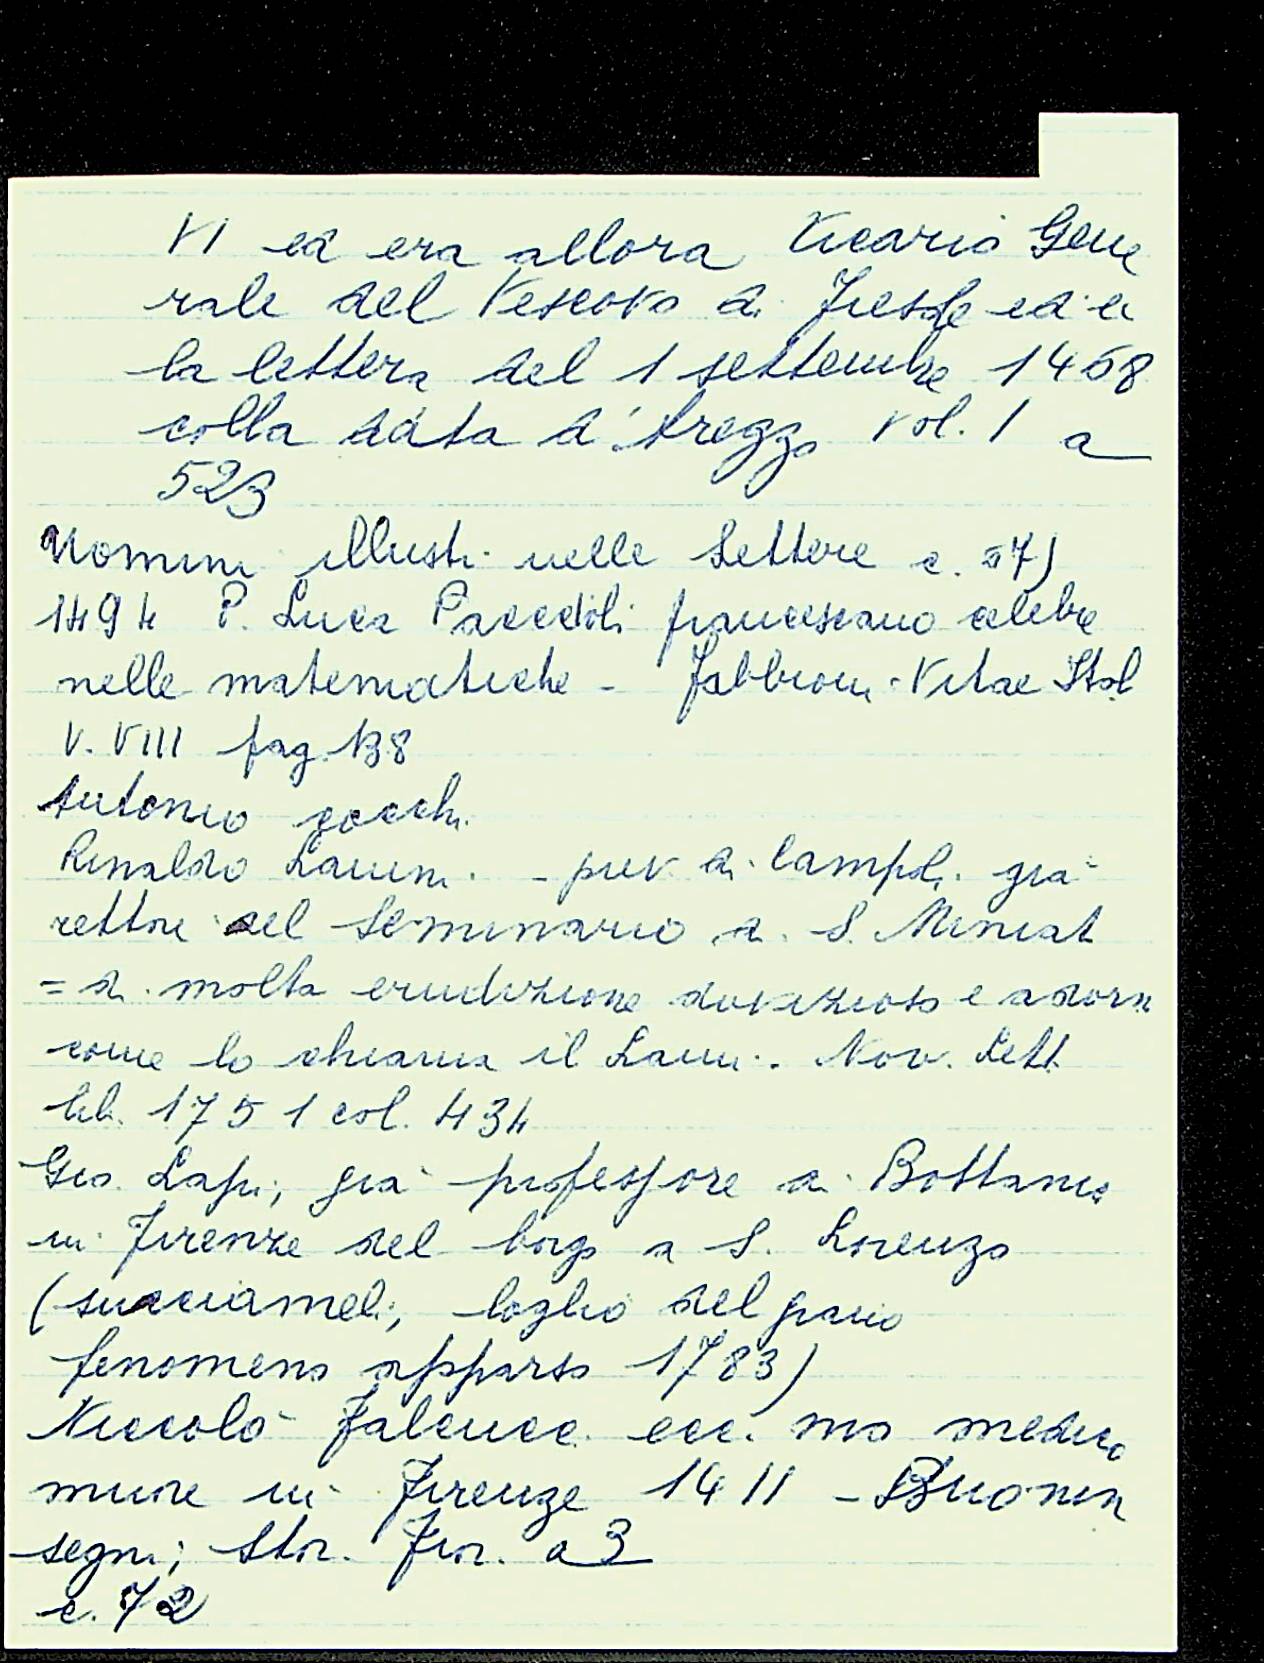 VI ed era allora Vicario Gene
rale del Vescovo di Fiesole ed è
la lettera del 1 settembre 1468
colla data d'Arezzo vol. 1 a
523
Uomini illustri nelle Lettere c. 57)
1494 P. Luca Paccioli francescano celebre
nelle matematiche - Fabbroni Vitae Ital
V. VIII pag. 138
Antonio Cocchi
Rinaldo Lanini - piev. di Campoli già
rettore del Seminario di S. Miniat
= di molta erudizione dovizioso e adorn
come lo chiama il Lami. Nov. Lett
1751 col. 434
Gio. Lapi, già professore di Bottanica
in Firenze del borgo a S. Lorenzo
(succiameli, loglio del grano
fenomeno apparso 1783)
Niccolò Falcucci ecc. mo medico
muore in Firenze 1411 - Buonin
segni; Stor. Fior. a 3
c. 72